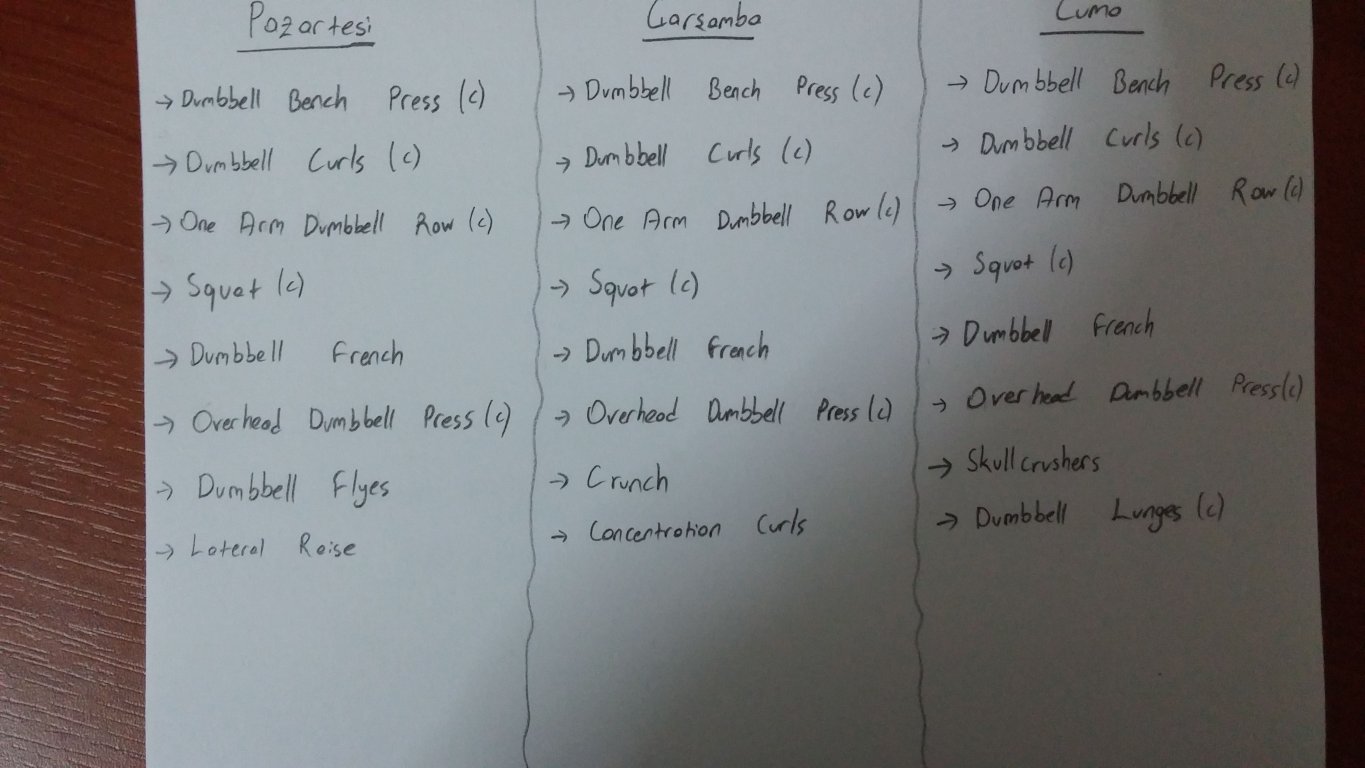 Pazartesi
→ Dumbbell Bench Press (c)
→ Dumbbell Curls (c)
→ One Arm Dumbbell Row (c)
→ Squat (c)
→ Dumbbell French
→ Overhead Dumbbell Press (c)
→ Dumbbell Flyes
→ Lateral Raise
Çarşamba
→ Dumbbell Bench Press (c)
→ Dumbbell Curls (c)
→ One Arm Dumbbell Row (c)
→ Squat (c)
→ Dumbbell French
→ Overhead Dumbbell Press (c)
→ Crunch
→ Concentration Curls
Cuma
→ Dumbbell Bench Press (c)
→ Dumbbell Curls (c)
→ One Arm Dumbbell Row (c)
→ Squat (c)
→ Dumbbell French
→ Overhead Dumbbell Press (c)
→ Skullcrushers
→ Dumbbell Lunges (c)